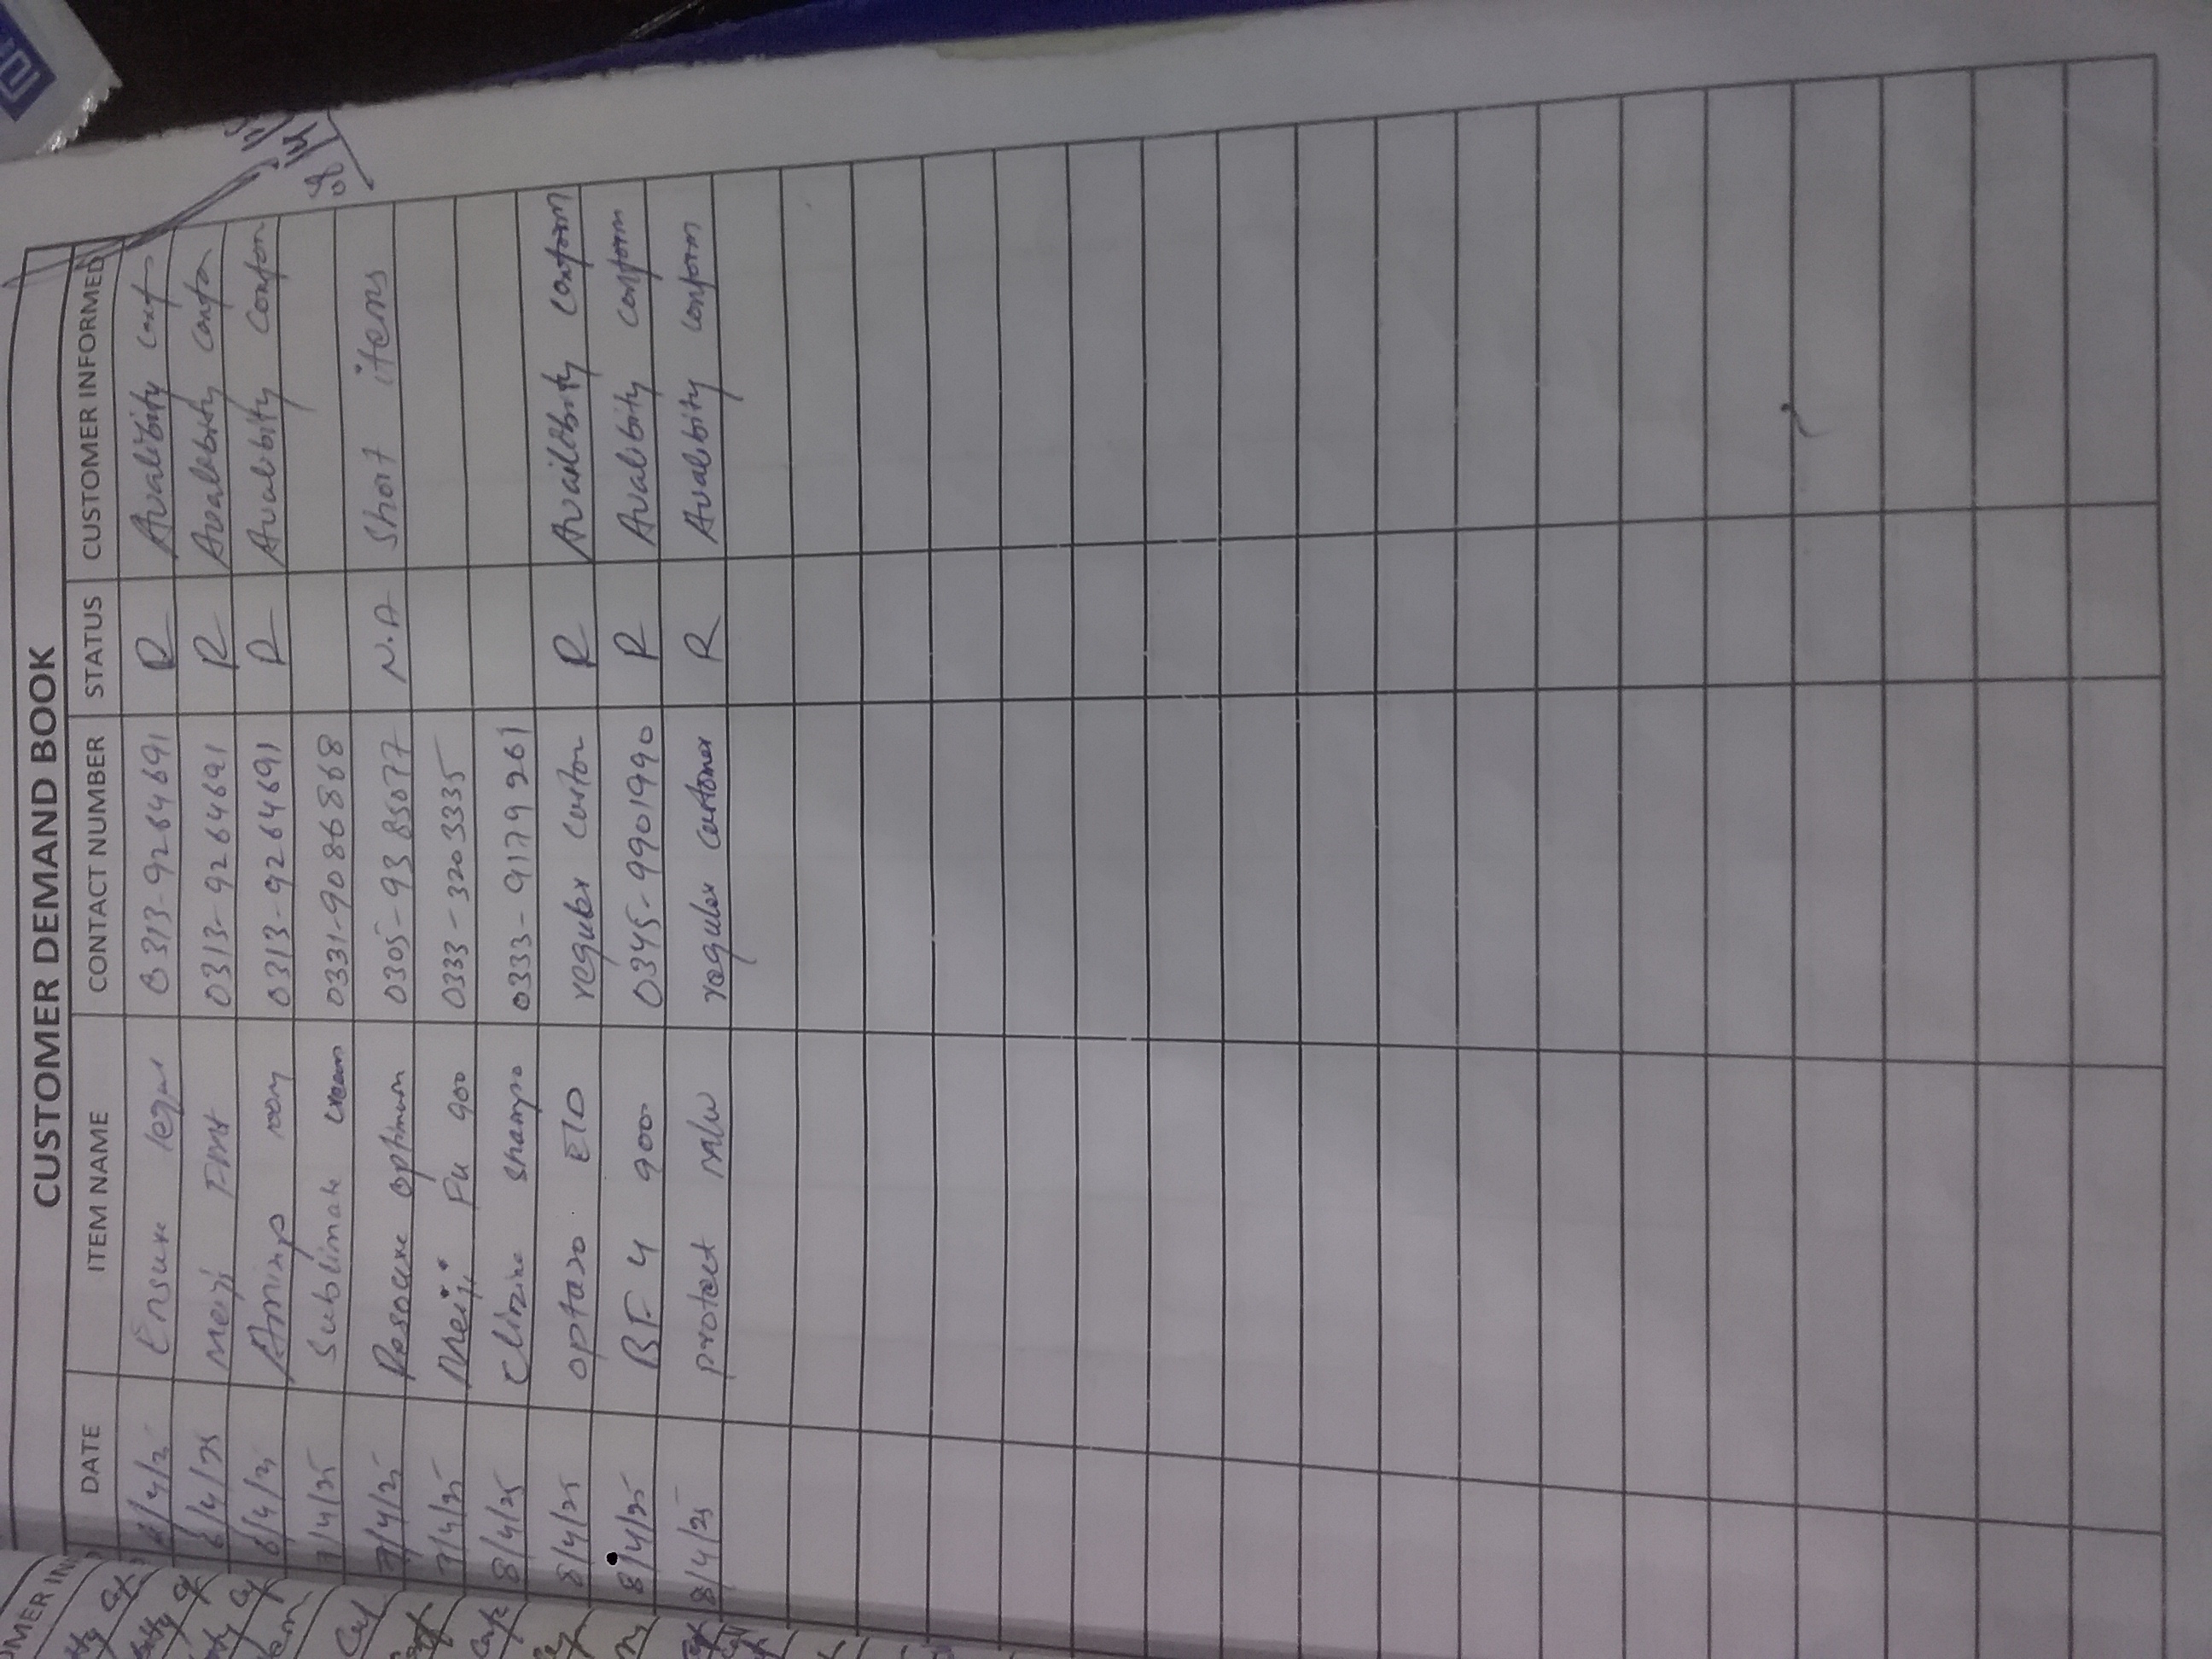 CUSTOMER DEMAND BOOK
DATE ITEM NAME CONTACT NUMBER STATUS CUSTOMER INFORMED
6/4/25 Ensure 0313-9264691 R Avalibity conf
6/4/25 Meiji 0313-9264691 R Avalebity confo
6/4/25 0313-9264691 R Avalebity Confor
7/4/25 Sublimate cream 0331-9086868
7/4/25 Resource optimum 0305-9385077 N.A Short items
7/4/25 Meiji Fu 900 0333-3203335
8/4/25 Clinzine Shampo 0333-9179961
8/4/25 optazo E/D reguler R Availebity conform
8/4/25 BF 4 900 0345-9901990 R Avalibity conform
8/4/25 protect M/W reguler customer R Avalebity conform